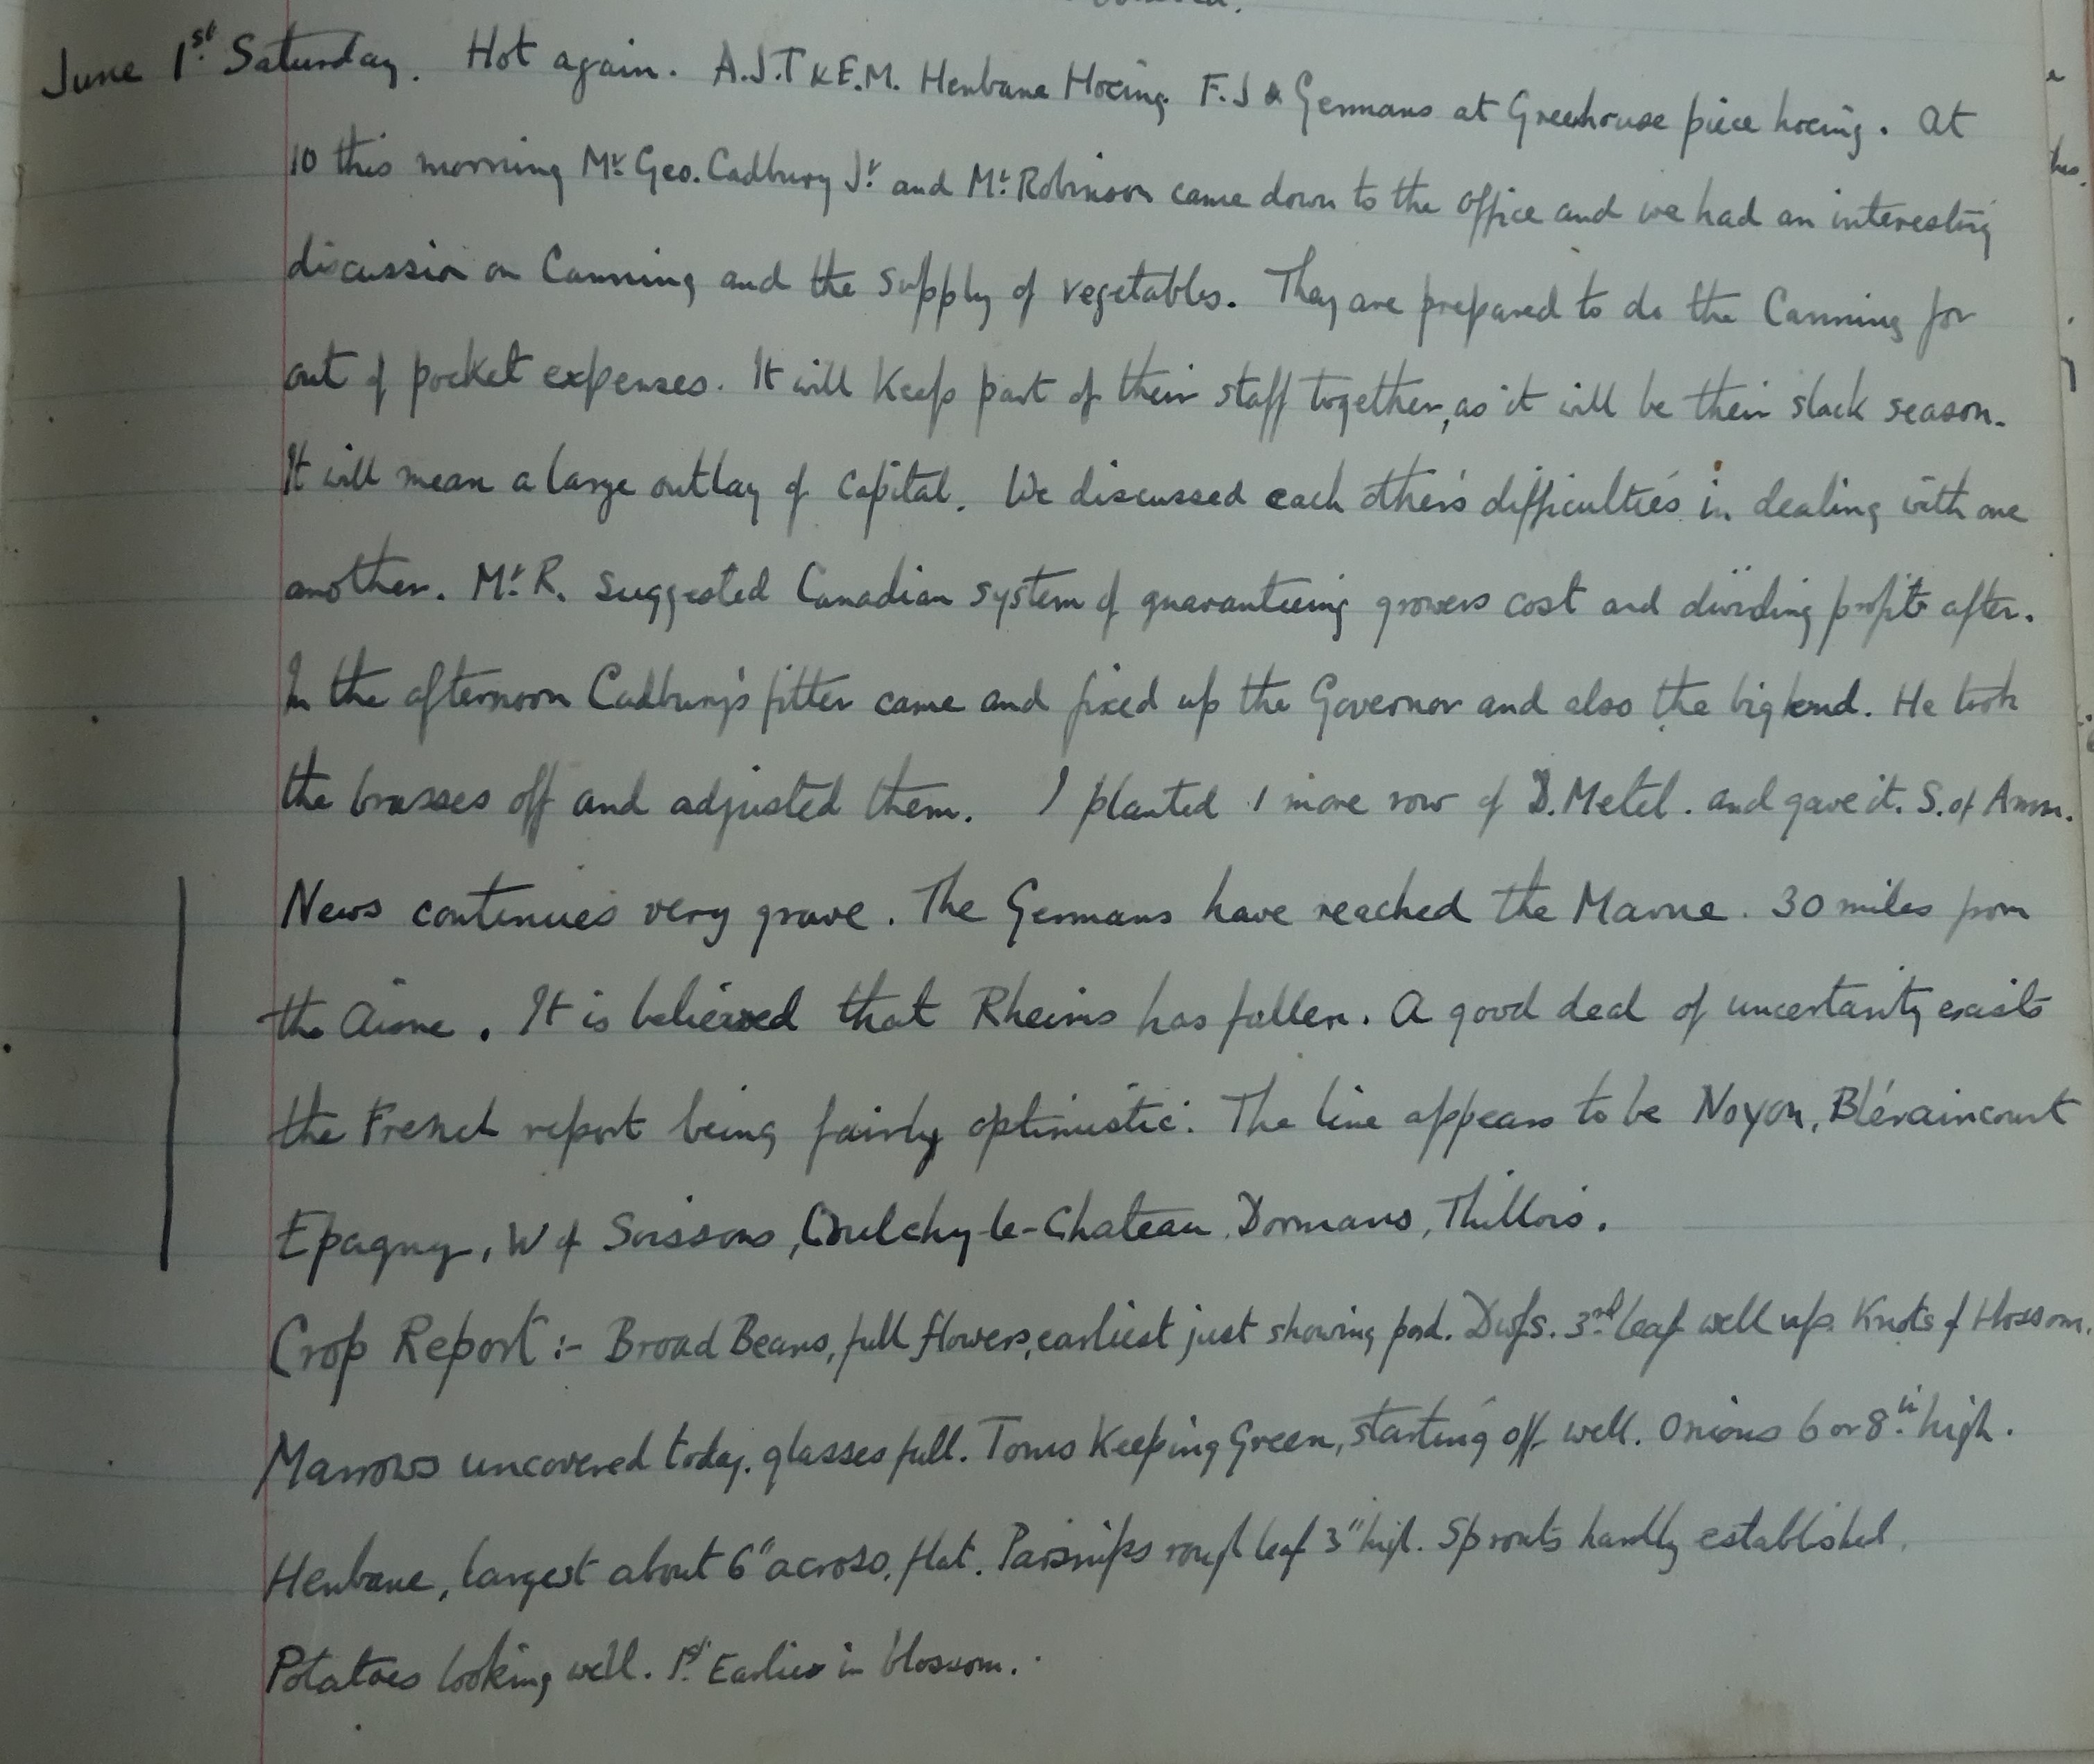 June 1st Saturday. Hot again. A.J.T & E.M. Henbane Hoeing. F.J & Germans at Greenhouse piece hoeing. At
10 this morning Mr. Geo. Cadbury Jr. and Mr. Robinson came down to the office and we had an interesting
discussion on Canning and the supply of vegetables. They are prepared to do the Canning for
out of pocket expenses. It will keep part of their staff together, as it will be their slack season.
It will mean a large outlay of capital. We discussed each other's difficulties in dealing with one
another. Mr. R. suggested Canadian system of guaranteeing growers cost and dividing profits after.
In the afternoon Cadbury's fitter came and fixed up the Governor and also the big end. He took
the brasses off and adjusted them. I planted 1 more row of D. Metel. and gave it. S. of Amm.
News continues very grave. The Germans have reached the Marne. 30 miles from
the Aisne. It is believed that Rheims has fallen. A good deal of uncertainty exists
the French report being fairly optimistic. The line appears to be Noyon, Bléraincourt
Epagny, W of Soissons, Oulchy-le-Chateau, Dormans, Thillois.
Crop Report :- Broad Beans, full flowers, earliest just showing pod. Dwfs. 3rd leaf well up. Knots of blossom.
Marrows uncovered today. glasses full. Toms Keeping Green, starting off well. Onions 6 or 8 in high.
Henbane, largest about 6" across, flat. Parsnips rough leaf 3" high. Sprouts hardly established.
Potatoes looking well. 1st Earlies in blossom.